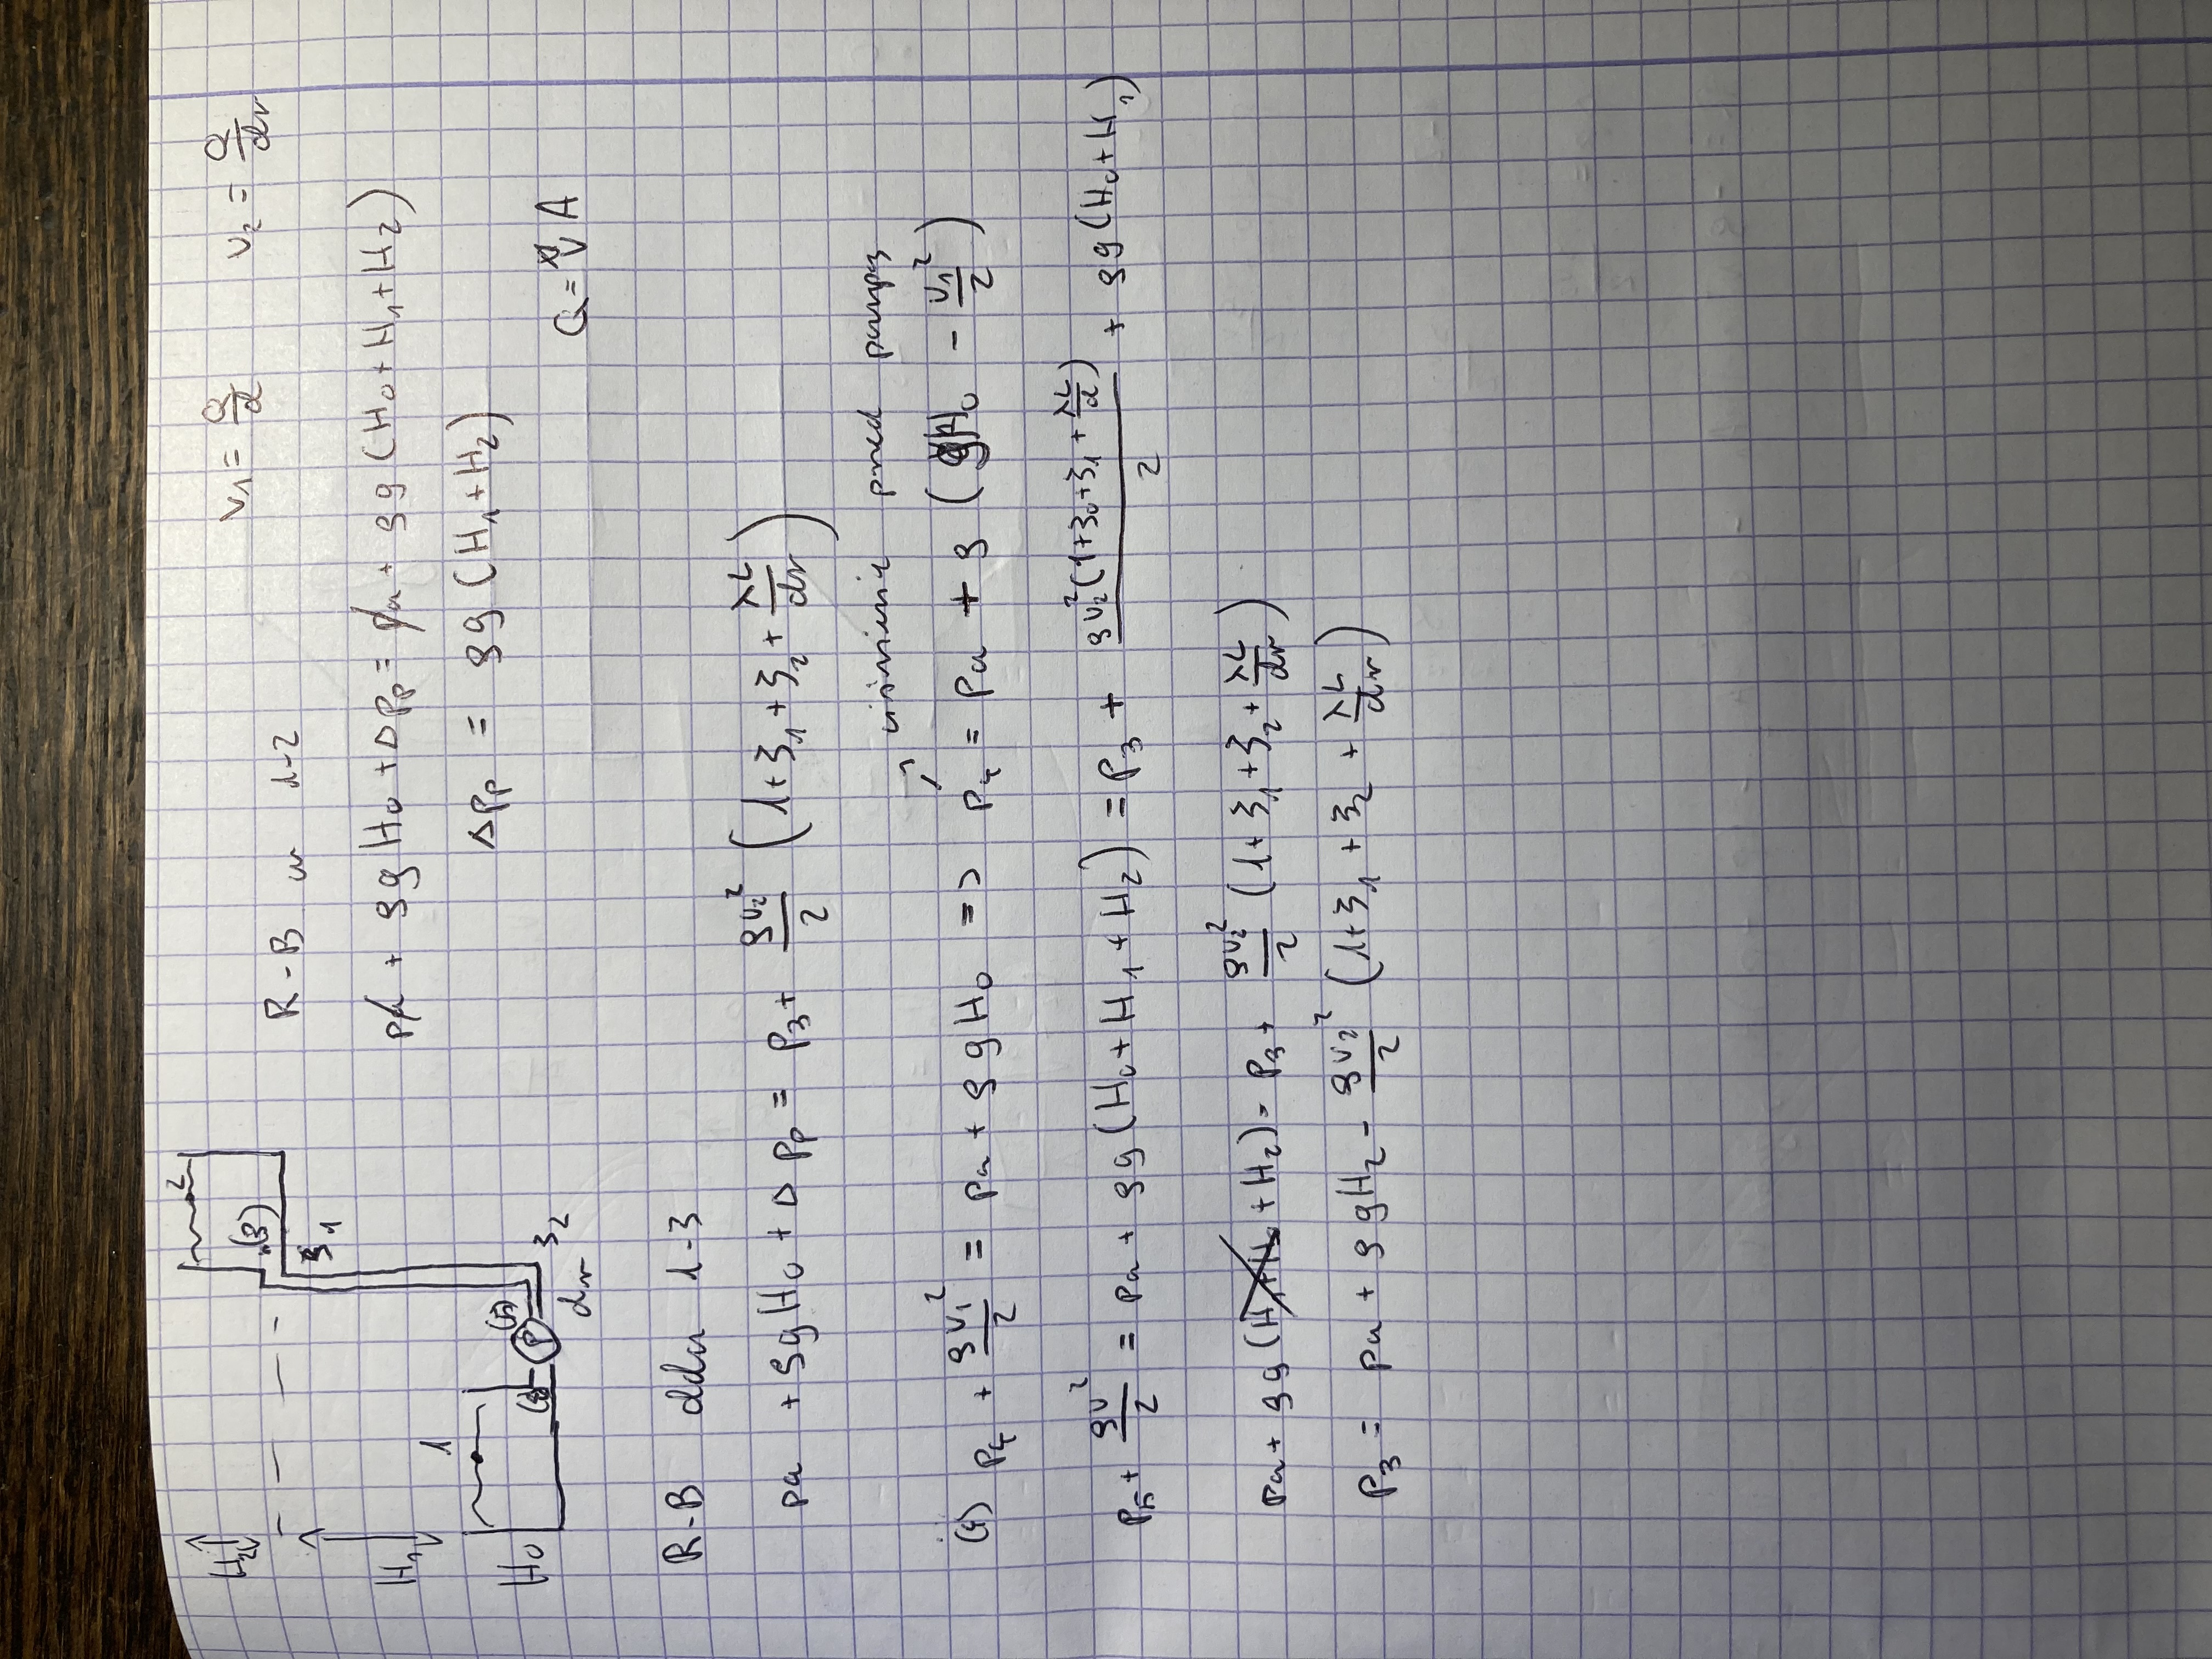 H₂
2
(3)
ζ₁
H₁
1
H₀
(4)
P
(5)
ζ₂
dr
v₁ = Q/d v₂ = Q/dr
R-B 1-2
pa + ρgH₀ + Δpp = pa + ρg(H₀+H₁+H₂)
Δpp = ρg(H₁+H₂)
Q = vA
R-B dla 1-3
pa + ρgH₀ + Δpp = p₃ + ρv₂²/2 (1+ζ₁+ζ₂+λL/dr)
ciśnienie przed pompą
(4) p₄ + ρv₁²/2 = pa + ρgH₀ => p₄ = pa + ρ(gH₀ - v₁²/2)
p₅ + ρv²/2 = pa + ρg(H₀+H₁+H₂) = p₃ + ρv₂²(1+ζ₀+ζ₁+λL/d)/2 + ρg(H₀+H₁)
pa + ρg(H₁+H₀+H₂) = p₃ + ρv₂²/2 (1+ζ₁+ζ₂+λL/dr)
p₃ = pa + ρgH₂ - ρv₂²/2 (1+ζ₁+ζ₂+λL/dr)